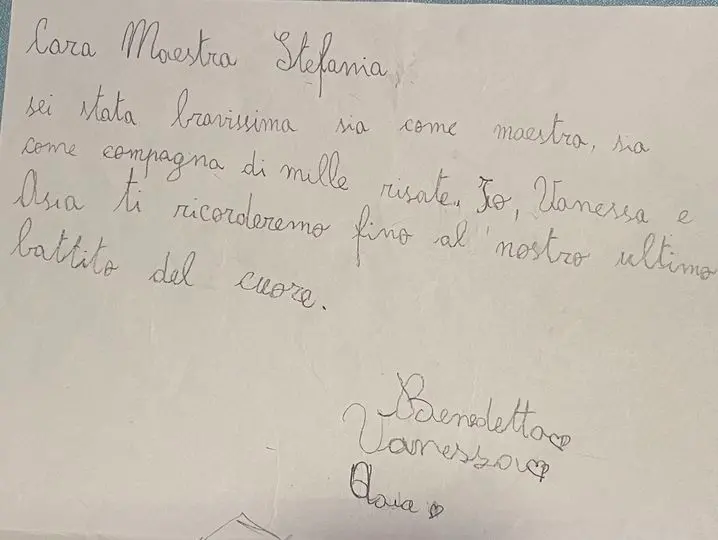 Cara Maestra Stefania,
sei stata bravissima sia come maestra, sia
come compagna di mille risate. Io, Vanessa e
Asia ti ricorderemo fino al nostro ultimo
battito del cuore.
Benedetta
Vanessa
Asia